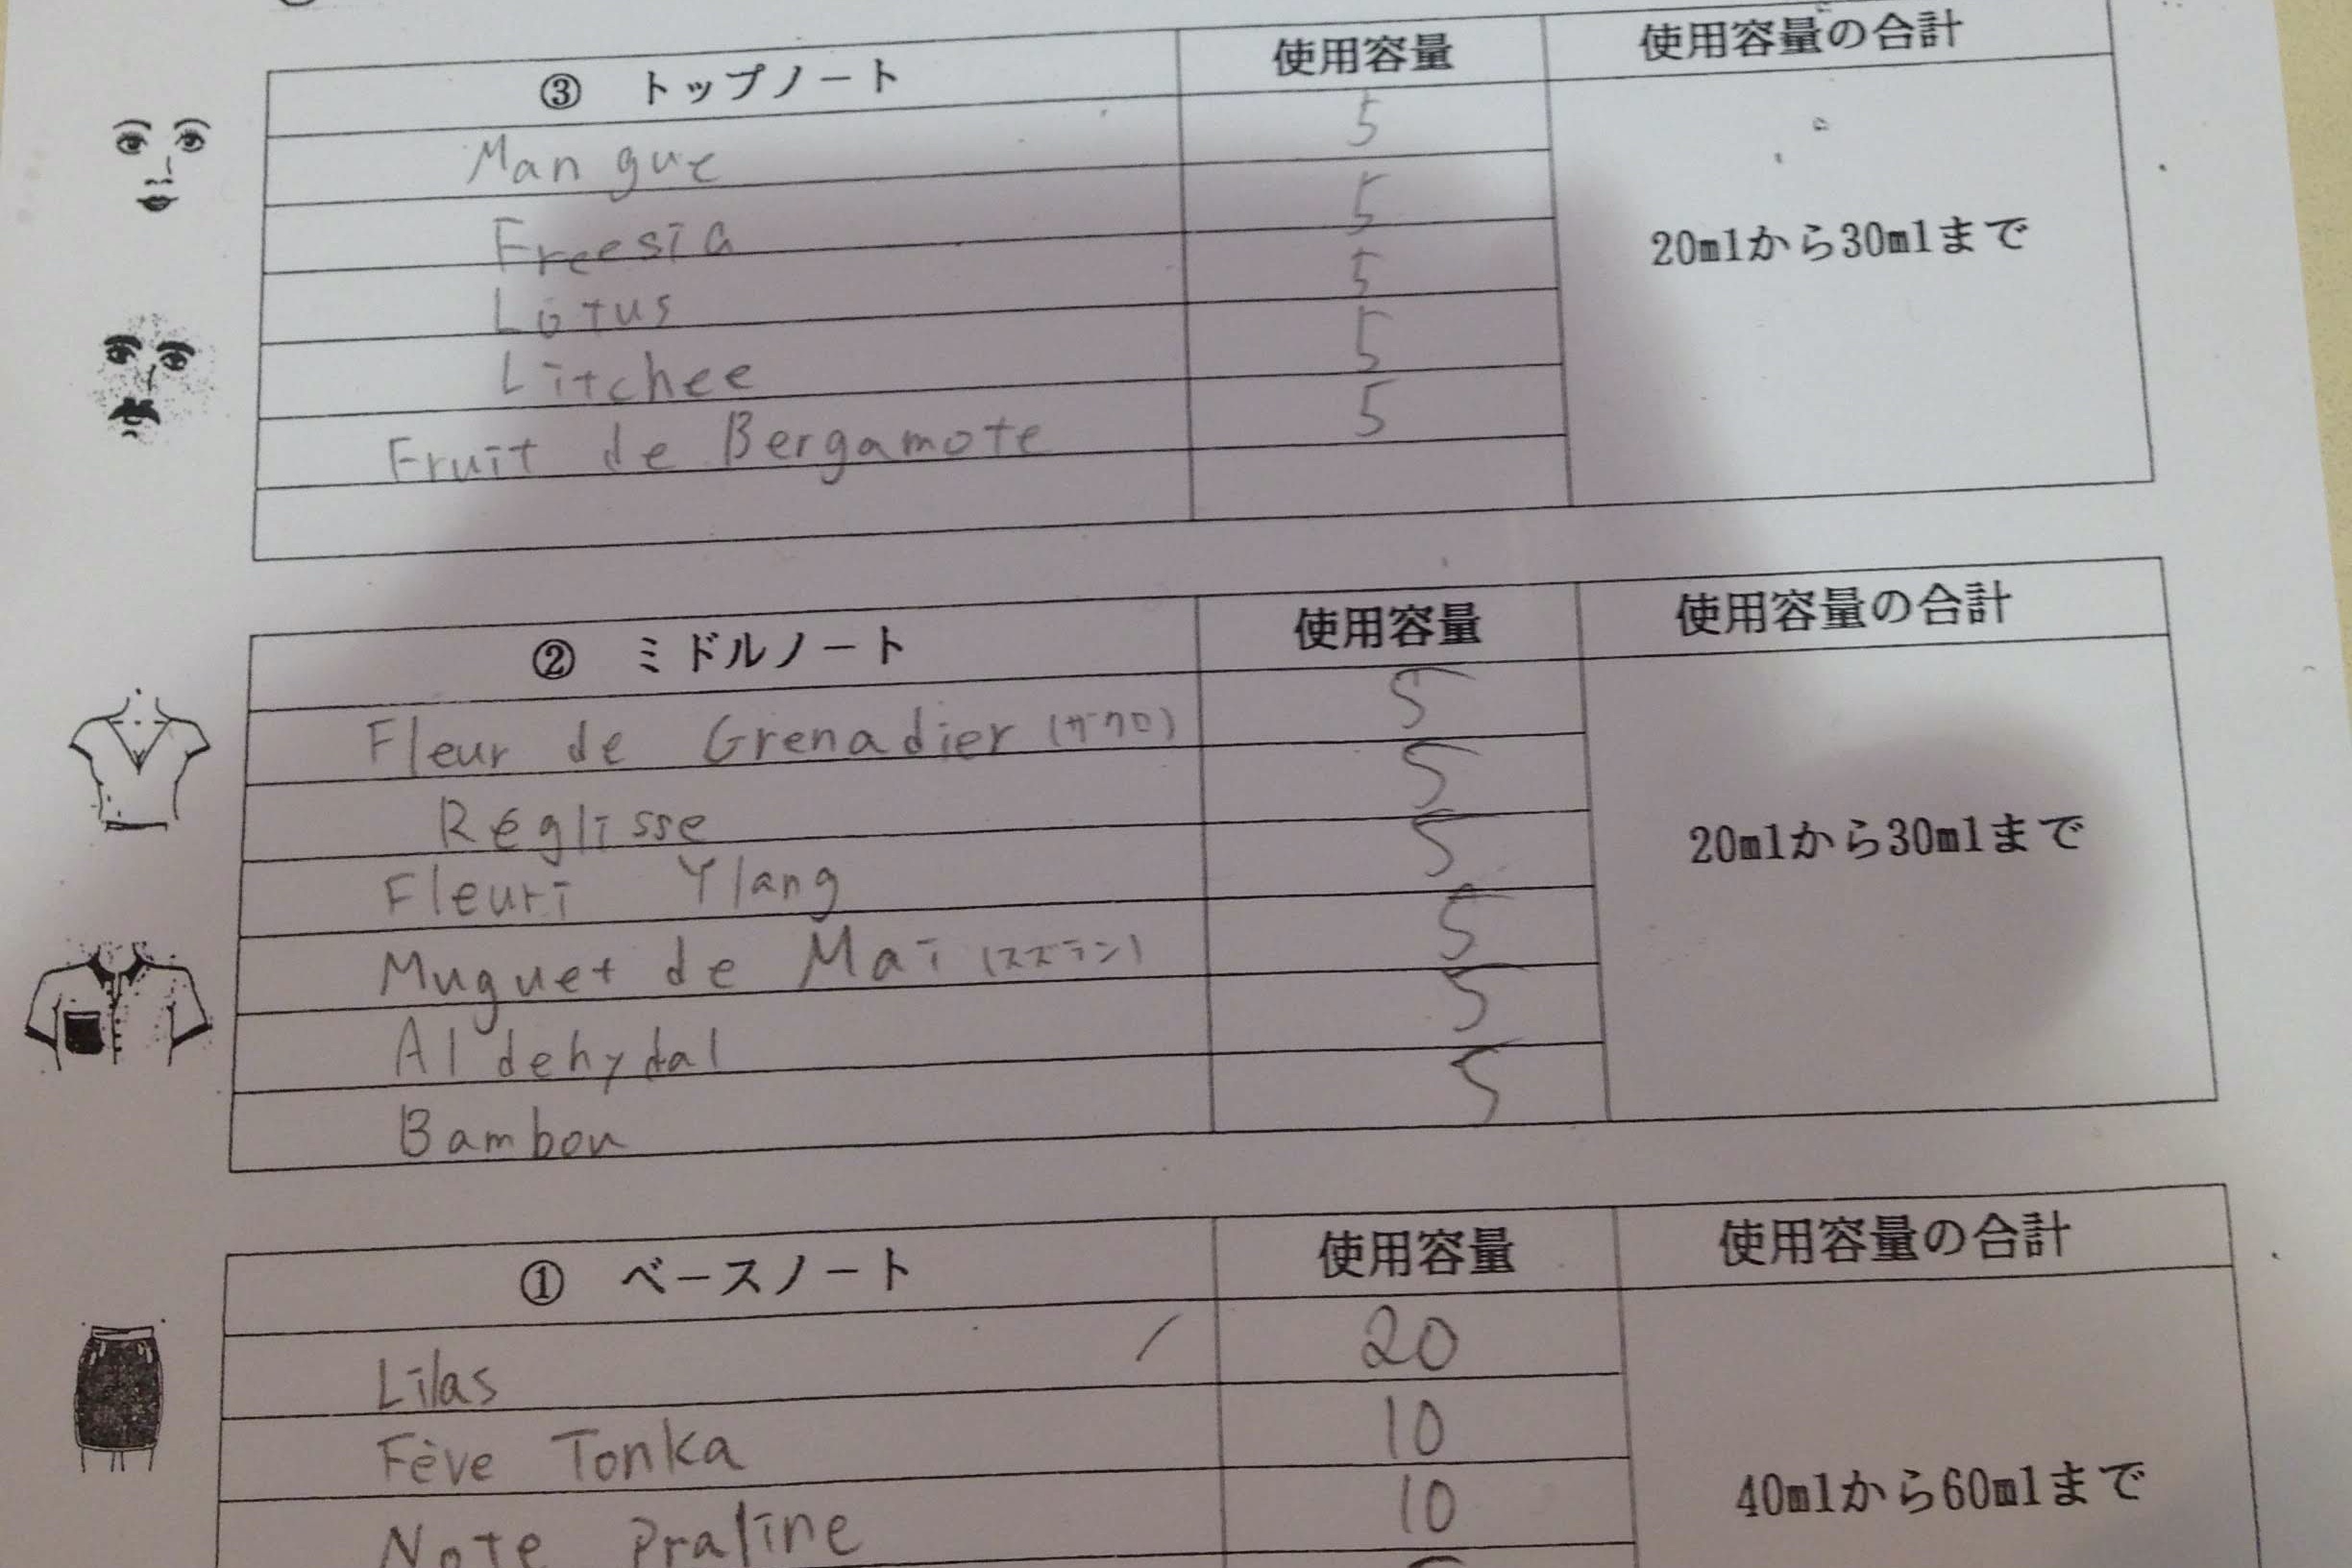 ③ トップノート 使用容量 使用容量の合計
Mangue 5
Freesia 5
20mlから30mlまで
Lotus 5
Litchee 5
Fruit de Bergamote 5
② ミドルノート 使用容量 使用容量の合計
Fleur de Grenadier (ザクロ) 5
Réglisse 5
20mlから30mlまで
Fleuri Ylang 5
Muguet de Mai (スズラン) 5
Aldehydal 5
Bambou 5
① ベースノート 使用容量 使用容量の合計
Lilas 20
Fève Tonka 10
40mlから60mlまで
Note Praline 10